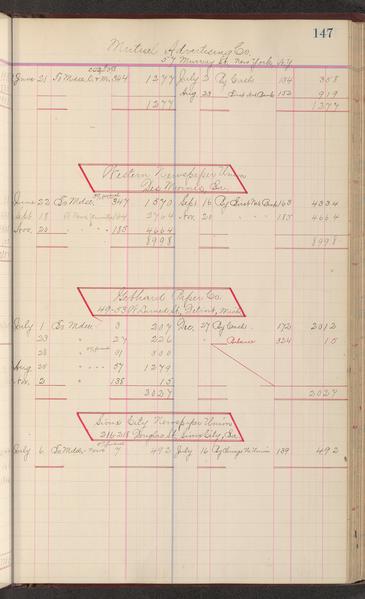 147
Mutual Advertising Co.
57 Murray St. New York NY
June 21 To Mdse. 344 1277 July 2 By Cash 134 358
Aug 23 152 919
1277 1277
Western Newspaper Union
Des Moines, Ia.
June 22 To Mdse. 347 1570 Sept 16 By 163 4334
Sept 18 2764 Nov. 20 " " " 185 4664
Nov. 20 " " " 185 4664
8998 8998
Gebhard Paper Co.
49-53 W Larned St, Detroit, Mich
July 1 To Mdse. 3 207 Dec. 27 By Cash. 172 2012
23 " 27 226 " Balance 324 15
28 " 31 300
Aug 20 " 57 1279
Nov. 2 " 138 15
2027 2027
Sioux City Newspaper Union
216-218 Douglas St. Sioux City, Ia.
July 6 To Mdse. 7 492 July 16 By 139 492